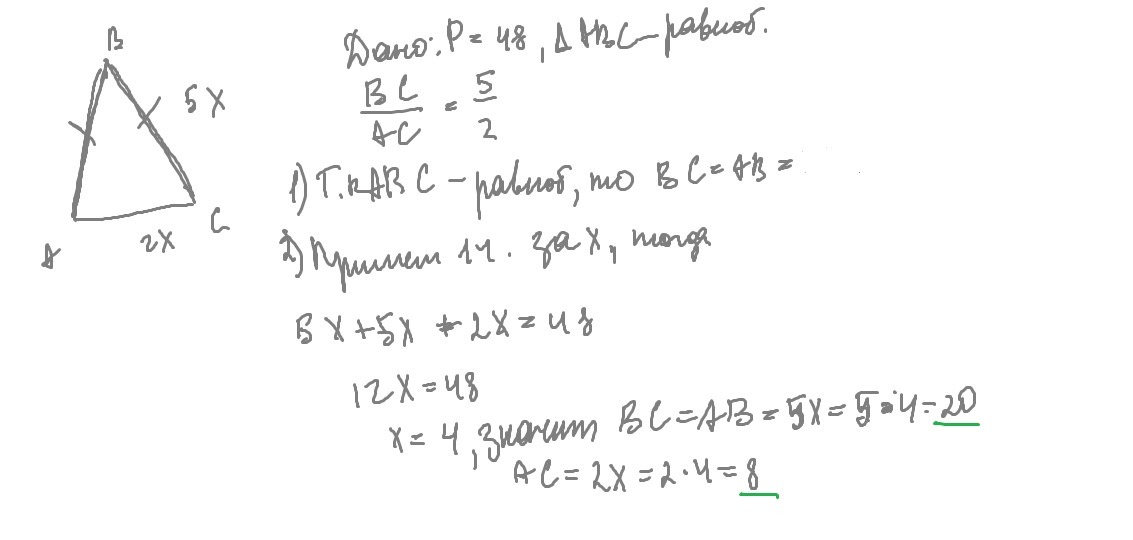 B
5x
A
C
2x
Дано: P = 48, Δ ABC – равноб.
BC/AC = 5/2
1) Т.к ABC – равноб, то BC = AB =
2) Примем 1 ч. за x, тогда
5x + 5x + 2x = 48
12x = 48
x = 4, значит BC = AB = 5x = 5·4 = 20
AC = 2x = 2·4 = 8